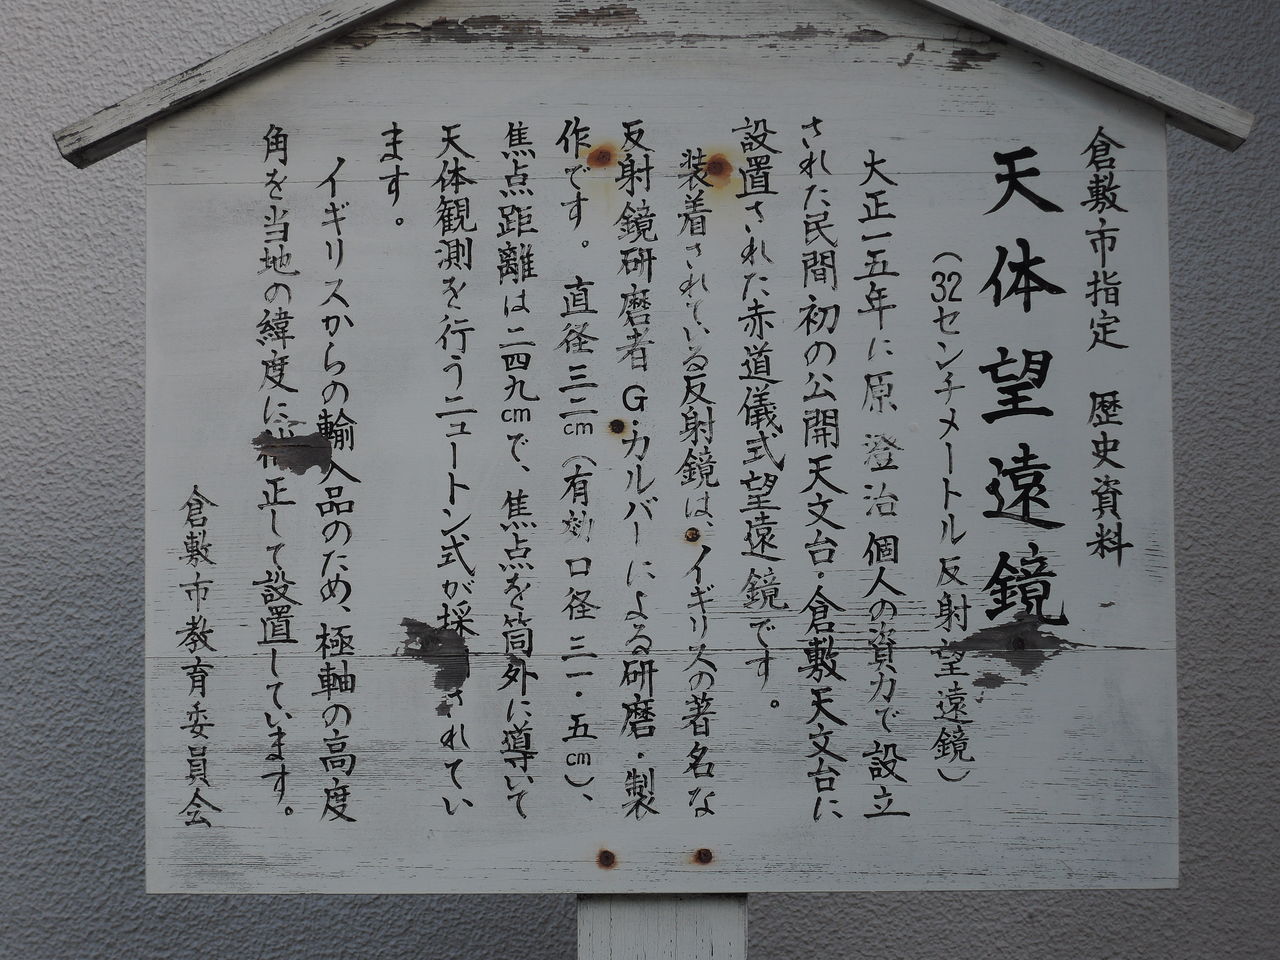 倉敷市指定　歴史資料
天体望遠鏡
（32センチメートル反射望遠鏡）
大正一五年に原 澄治 個人の資力で設立
された民間初の公開天文台・倉敷天文台に
設置された赤道儀式望遠鏡です。
装着されている反射鏡は、イギリスの著名な
反射鏡研磨者 G・カルバーによる研磨・製
作です。直径三二cm（有効口径三一・五cm）、
焦点距離は二四九cmで、焦点を筒外に導いて
天体観測を行うニュートン式が採されてい
ます。
イギリスからの輸入品のため、極軸の高度
角を当地の緯度に正して設置しています。
倉敷市教育委員会